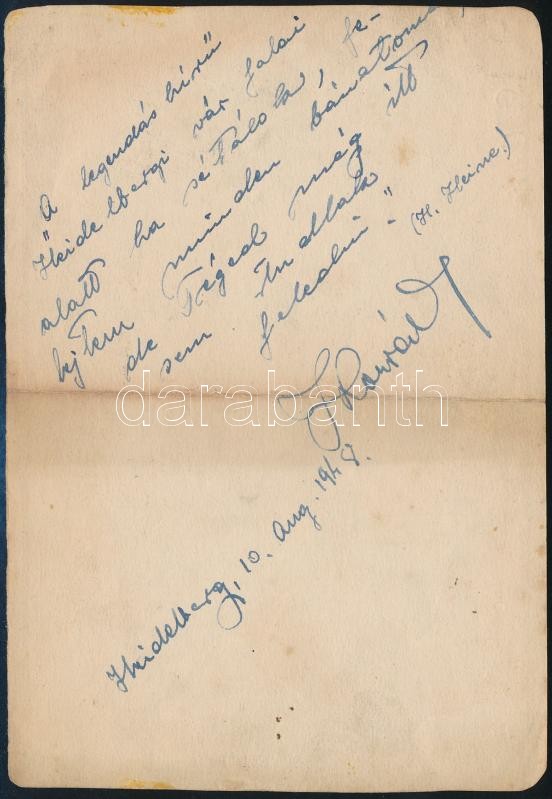 A legendás hírű
"Heidelbergi vár falai
alatt ha sétálok, fe-
lejtem minden bánatomat,
de Téged még itt
sem tudlak
feledni."
(H. Heine.)
Konrád
Heidelberg, 10. Aug. 1948.
darabanth